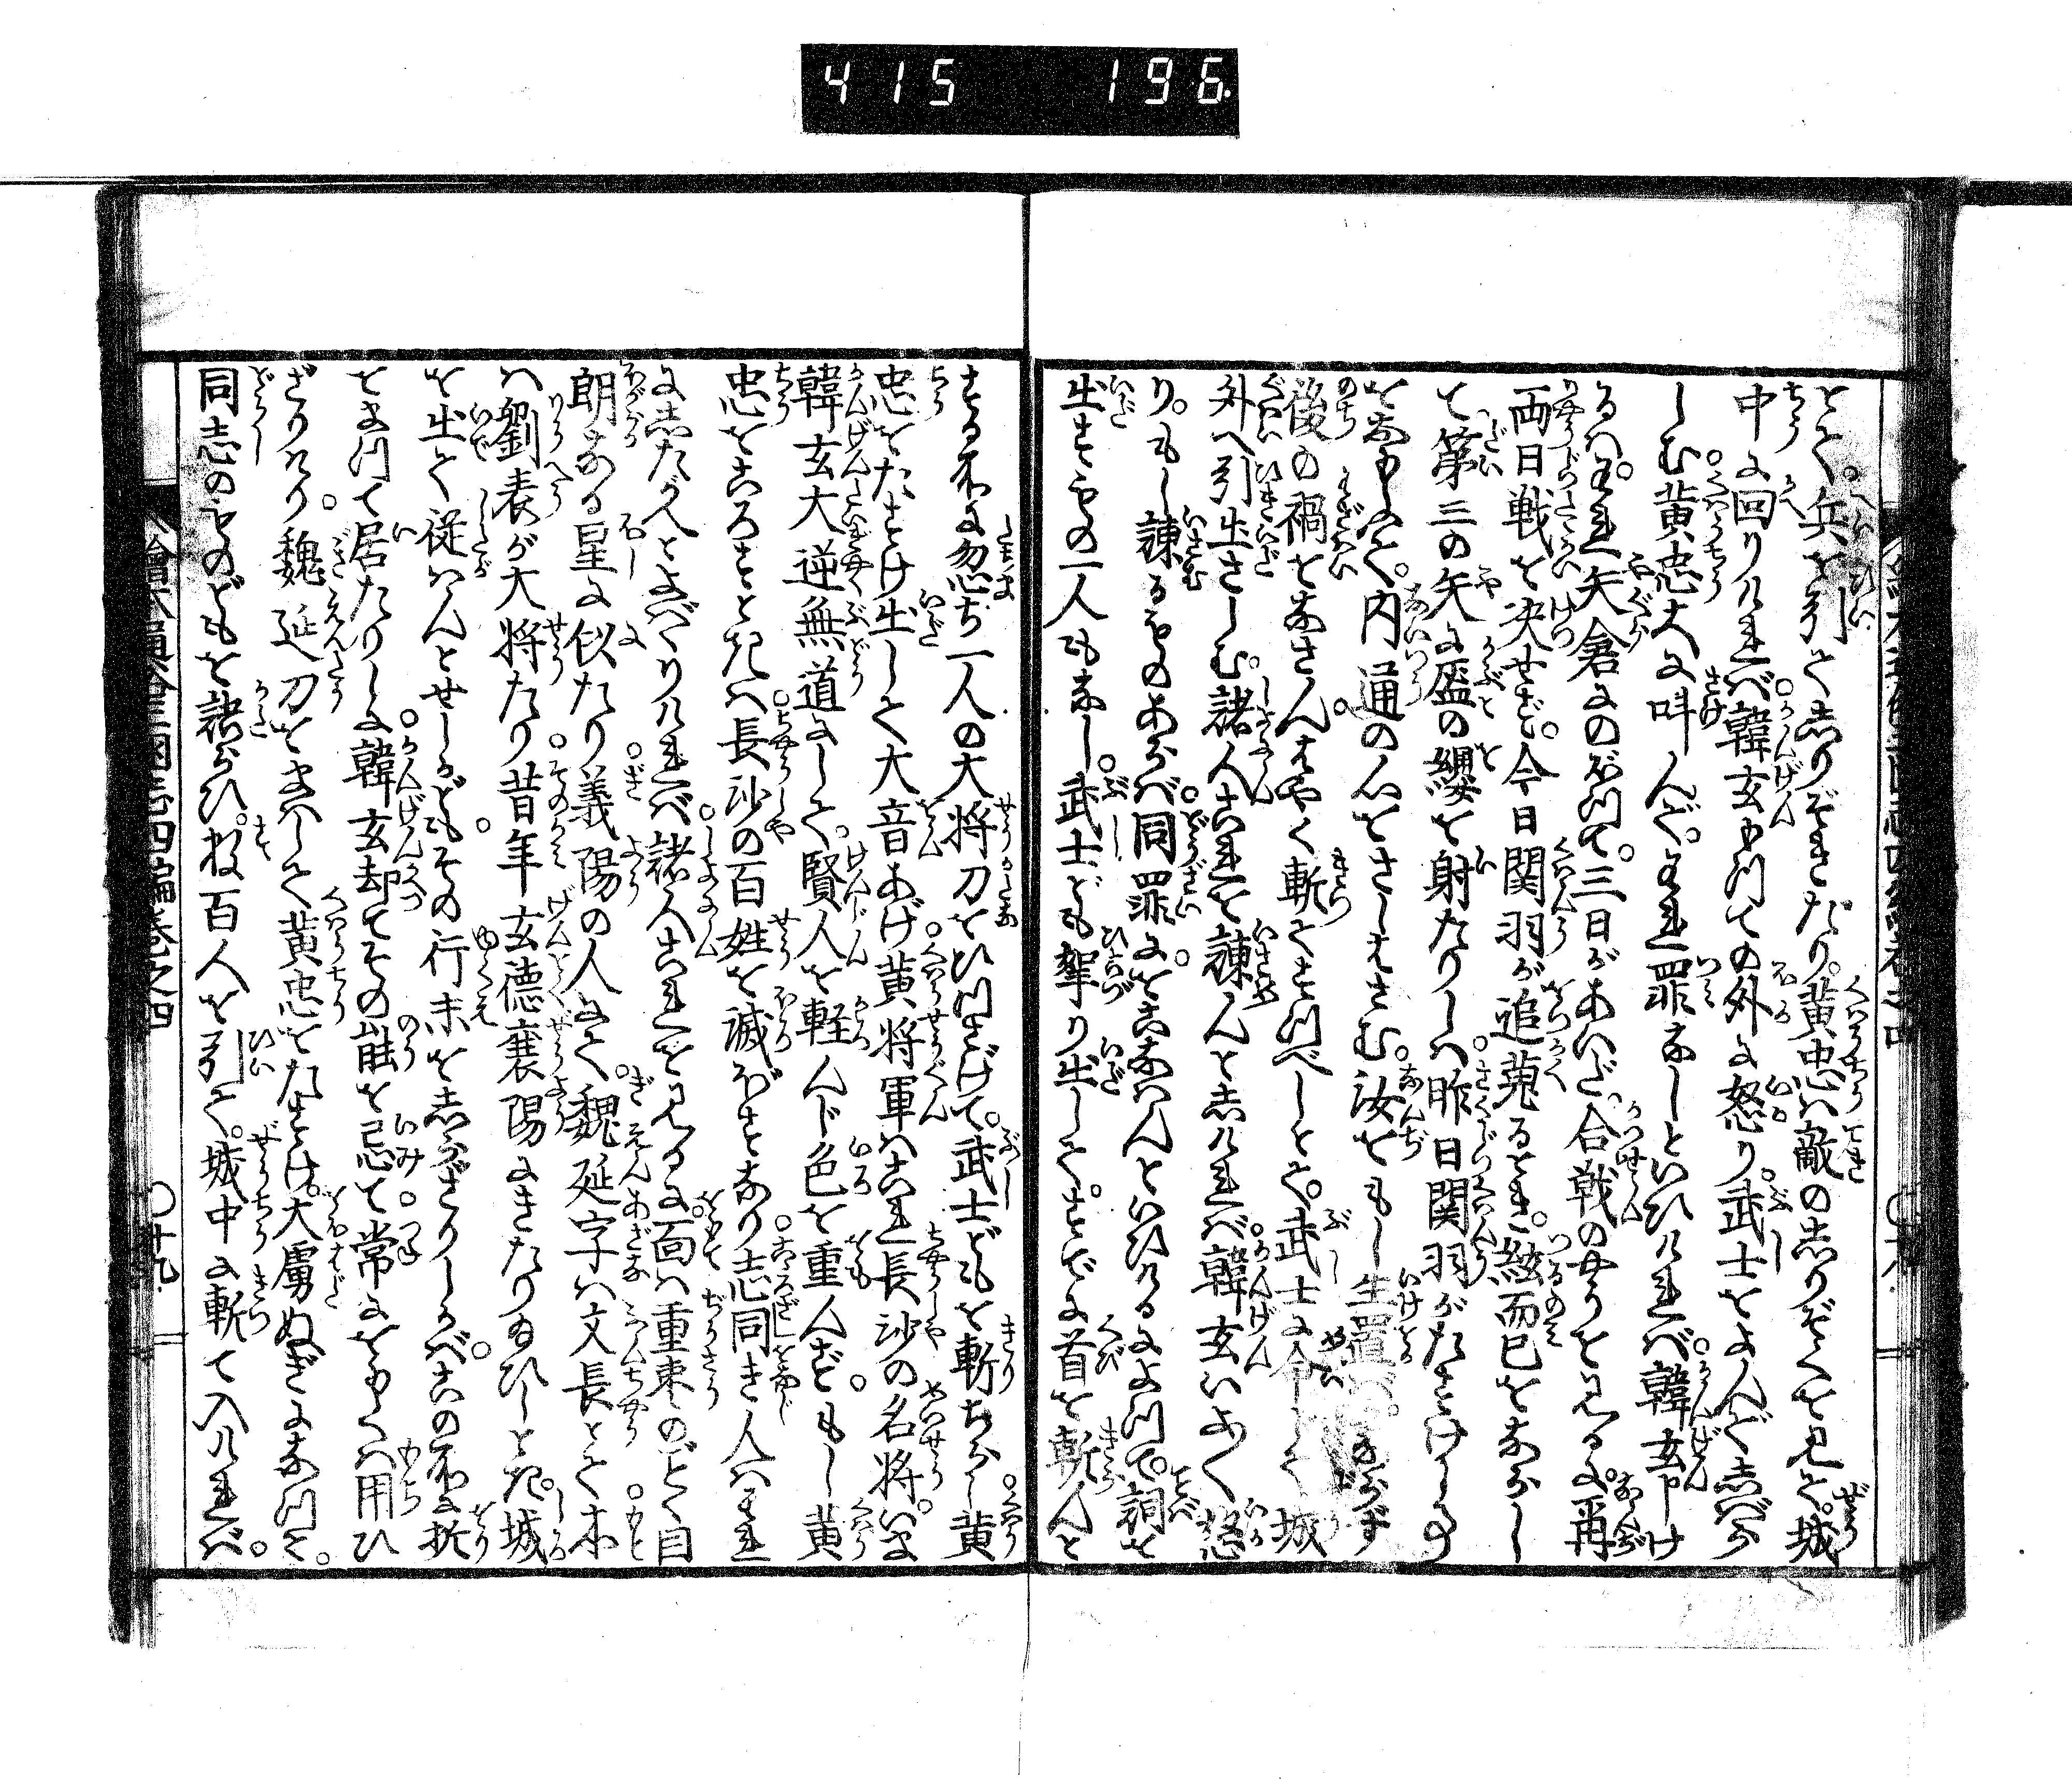 415 196
とて。兵を引て志りぞきたり。黄忠ハ敵の志りぞくを見と。城
中に回りけれバ韓玄もつての外に怒り。武士をよんで志バら
しむ。黄忠大に叫んで。われ罪なしといひけれバ。韓玄申け
るハ。われ矢倉にのぼつて。三日があいだ。合戦のやうを見るに。再
両日戦を决せざ。今日関羽が追蒐るとき。絃而已をならし
て第三の矢に盔の纓を射たりしハ。昨日関羽がたすけしの
をおもふて。内通の心をさしはさむ。汝をもし生置バ。かならず
後の禍をなさん。はやく斬てすつべしとて。武士に令して城
外へ引出さしむ。諸人これを諫んと志けれバ。韓玄いよ〱怒
り。もし諫るものあらバ。同罪にをこなハんといひけるによつて。詞を
出すもの一人もなし。武士ども挐り出して。すでに首を斬んと
する所に忽ち一人の大将刀をひつさげて。武士どもを斬ちらし。黄
忠をたすけ出して大音あげ。黄将軍ハこれ長沙の名将。いま
韓玄大逆無道にして。賢人を軽んじ色を重んず。もし黄
忠をころすときハ。長沙の百姓を滅ぼすなり。志同き人ハわれ
に志たがへとよバりけれバ。諸人これを見るに。面ハ重棗のごとく目
朗なる星に似たり。義陽の人にて。魏延字ハ文長とて。本
ハ劉表が大将たり。昔年玄徳襄陽にきたりゐひしとき。城
を出て従ハんとせしかども。その行末を志らざりしかバ。この所に来り
てきつて居たりしに。韓玄却てその能を忌て。常にをもく用ひ
ざりけり。魏延刀をまハして黄忠をたすけ。大膚ぬぎになつて。
同志のものどもを誘ひ。数百人を引て。城中に斬て入けれバ。
繪本通俗三國志四編巻之四 〇廿九